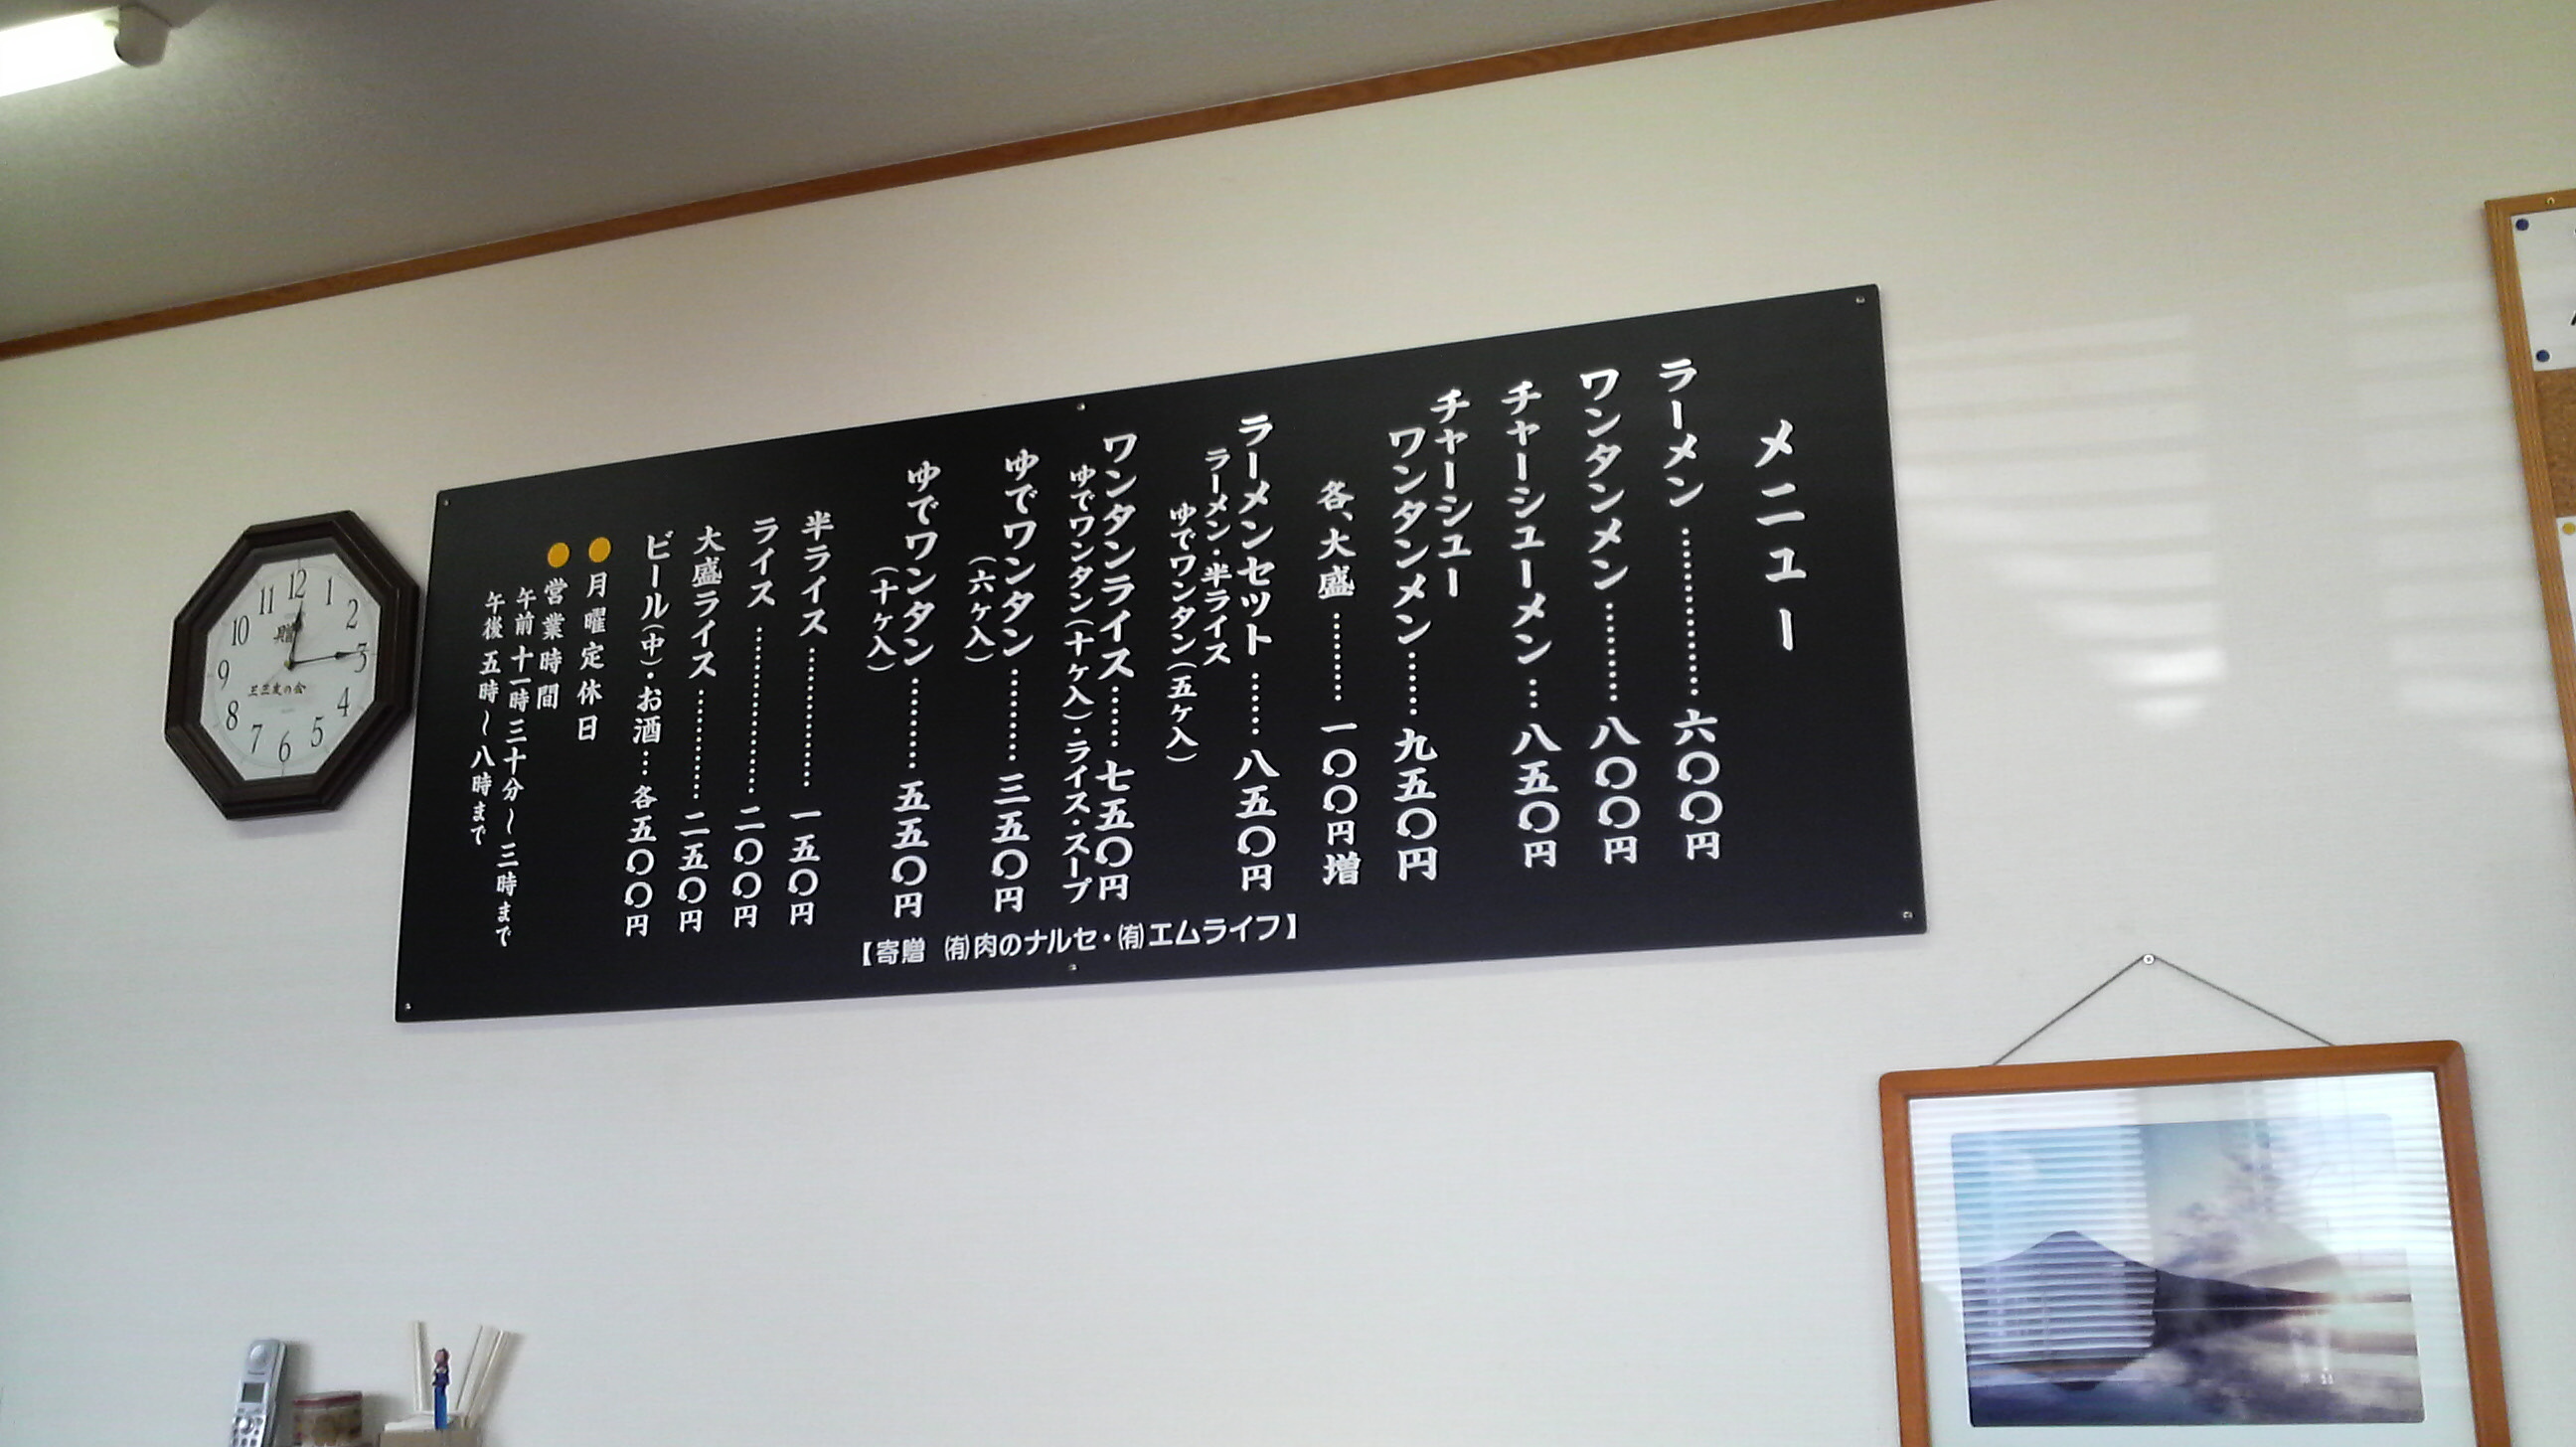 メニュー
ラーメン……………六〇〇円
ワンタンメン………八〇〇円
チャーシューメン…八五〇円
チャーシュー
ワンタンメン……九五〇円
各、大盛………一〇〇円増
ラーメンセット……八五〇円
ラーメン・半ライス
ゆでワンタン(五ヶ入)
ワンタンライス……七五〇円
ゆでワンタン(十ヶ入)・ライス・スープ
ゆでワンタン………三五〇円
(六ヶ入)
ゆでワンタン………五五〇円
(十ヶ入)
半ライス…………一五〇円
ライス……………二〇〇円
大盛ライス………二五〇円
ビール(中)・お酒…各五〇〇円
●月曜定休日
●営業時間
午前十一時三十分〜三時まで
午後五時〜八時まで
【寄贈 ㈲肉のナルセ・㈲エムライフ】
12
1
2
3
4
5
6
7
8
9
10
11
贈